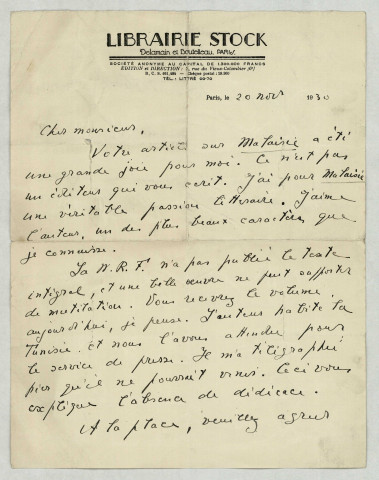 LIBRAIRIE STOCK
Delamain et Boutelleau, PARIS
SOCIÉTÉ ANONYME AU CAPITAL DE FRANCS
EDITION et DIRECTION : 7, rue du Vieux-Colombier (6e)
R. C. S. Chèque postal :
TÉL. : LITTRÉ
Paris, le 20 nov 1930
Cher monsieur,
Votre article sur Malaisie a été
une grande joie pour moi. Ce n'est pas
un éditeur qui vous écrit. J'ai pour Malaisie
une véritable passion littéraire. J'aime
l'auteur, un des plus beaux caractères que
je connaisse.
La N.R.F. n'a pas publié le texte
intégral, et une telle œuvre ne peut supporter
de mutilation. Vous recevrez le volume
aujourd'hui, je pense. L'auteur habite la
Tunisie et nous l'avons attendu pour
le service de presse. Il m'a télégraphié
qu'il ne pourrait venir. Ceci vous
explique l'absence de dédicace.
A la place, veuillez agréer